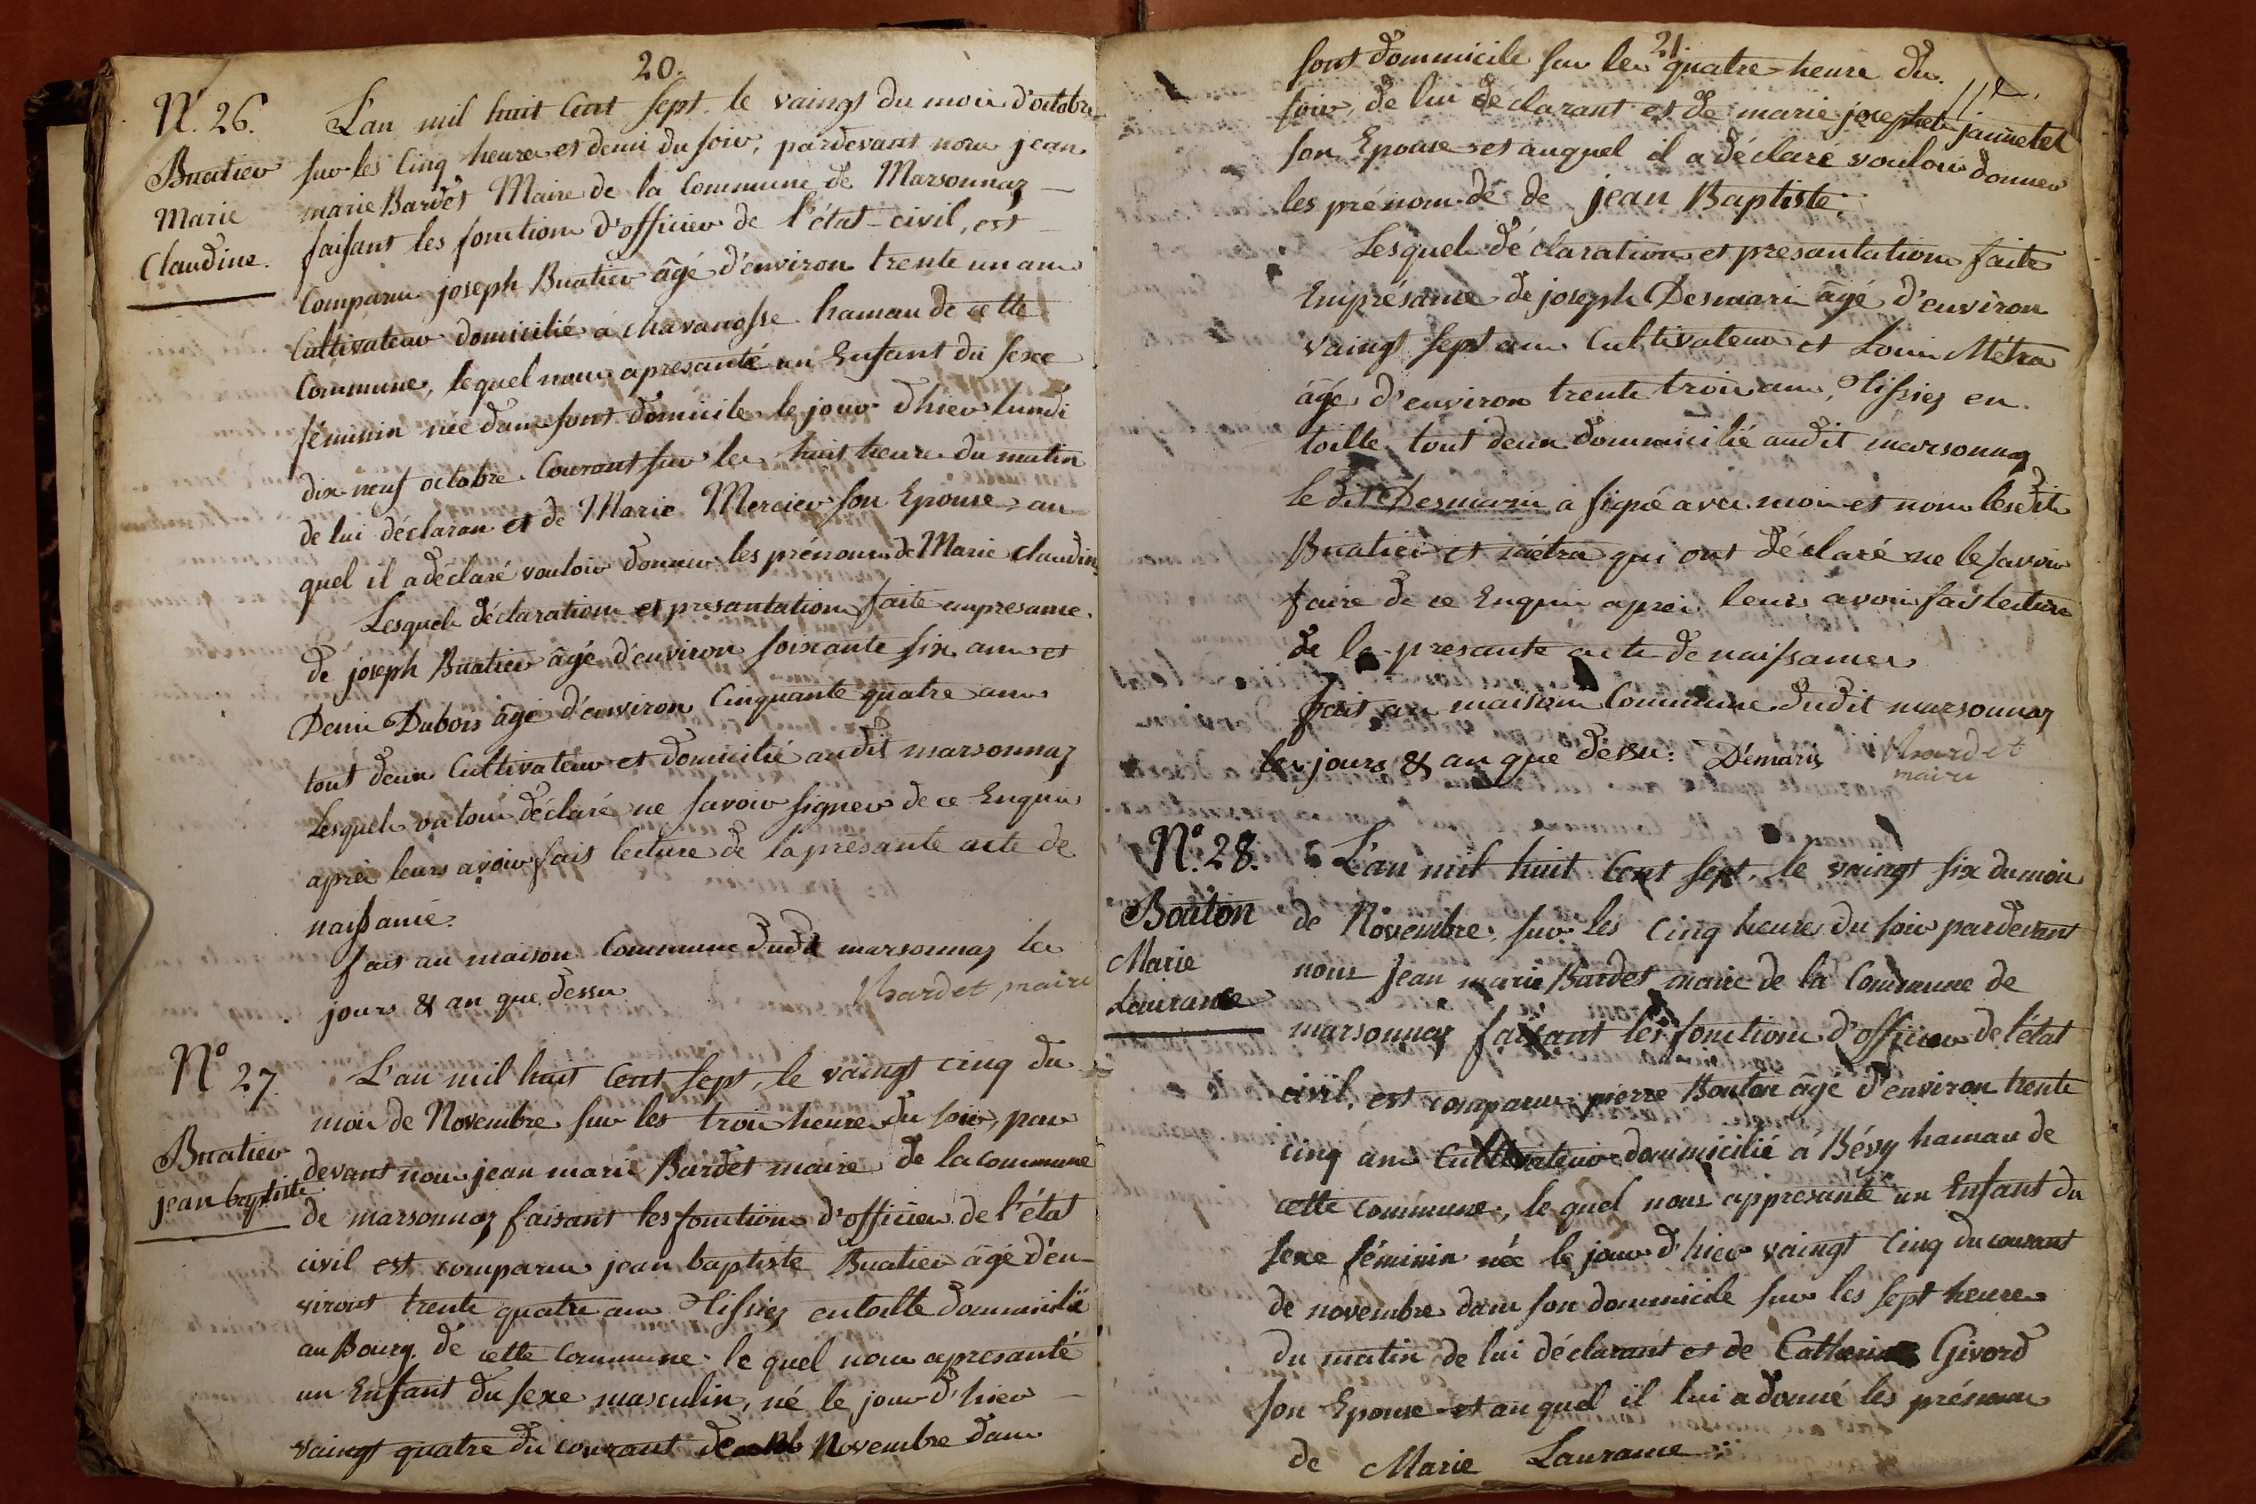 20.
N.° 26.
Buatier
Marie
Claudine.
L'an mil huit Cent sept. le vaingt du mois d'octobre
sur les Cinq heures et demi du soir, pardevant nous jean
marie Bardet Maire de la Commune de Marsonnaz
faisant les fonctions d'officier de l'état-civil, est
Comparus joseph Buatier âgé d'environ trente un ans
Cultivateur domicilié à chavanosse hamau de cette
Commune, lequel nous apresanté un Enfant du sexe
féminin née dans sont domicile le jour d'hier lundi
dix-neuf octobre Courant sur les huit heures du matin
de lui déclaran et de Marie Mercier son Epouse, au
quel il a déclaré vouloir donner les prénoms de Marie claudine
Lesquels déclarations et presantations faite enpresance
de joseph Buatier âgé d'environ soixante six ans et
Denis Dubois âgé d'environ Cinquante quatre ans
tout deux Cultivateur et domicilié audit marsonnaz
Lesquels ontous déclaré ne savoir signer de ce Enquis
aprés leurs avoir fais lecture de la présante acte de
naissance.
fais au maison Commune dudit marsonnaz les
jours & an que dessu
JBardet maire
N.° 27.
Buatier
jean baptiste
L'an mil huit Cent sept, le vaingt cinq du
mois de Novembre sur les trois heures du soir, par
devant nous jean marie Bardet maire de la commune
de marsonnaz faisant les fonctions d'officier de l'état
civil est comparus jean baptiste Buatier âgé d'en-
viront trente quatre ans Tissiez entoille dommicilié
au Bourg. de cette Commune. le quel nous apresanté
un Enfant du sexe masculin, né le jour d'hier
vaingt quatre du courant de Novembre dans
21.
sont dommicile sur les quatre heure du
soir, de lui déclarant et de marie josephte jannetet
son Epouse et auquel il a déclaré vouloir donner
les prénom de de jean Baptiste.
Lesquels déclarations et presantations faite
Emprésance de joseph Desmari âgé d'environ
vaingt sept ans Cultivateur et Louis Métra
âgé d'environ trente trois ans, Tissiez en
toille tout deux dommicilié audit marsonnaz
le dit Desmaris a signé avec moi et nom lesdits
Buatier et métra qui ont déclaré ne le savoir
faire de ce Enquis aprés leurs avoir fais lecture
de la presante acte de naissances
fait au maison Commune dudit marsonnaz
les jours & an que dessu: Démaris JBardet
maire
N.° 28.
Bouton
Marie
Laurance
L'an mil huit Cent sept, le vaingt six du mois
de Novembre, sur les Cinq heures du soir pardevant
nous jean marie Bardet maire de la Commune de
marsonnaz faisant les fonctions d'officier de l'état
civil, est comparus pierre Bouton âgé d'environ trente
cinq ans Cultivateur dommicilié à Bévy hamau de
cette commune, le quel nous appresanté un Enfant du
sexe féminin née le jour d'hier vaingt Cinq du courant
de novembre dans son dommicile sur les sept heures
du matin de lui déclarant et de Catherine Givord
son Epouse et au quel il lui a donné les prénoms
de Marie Laurance :